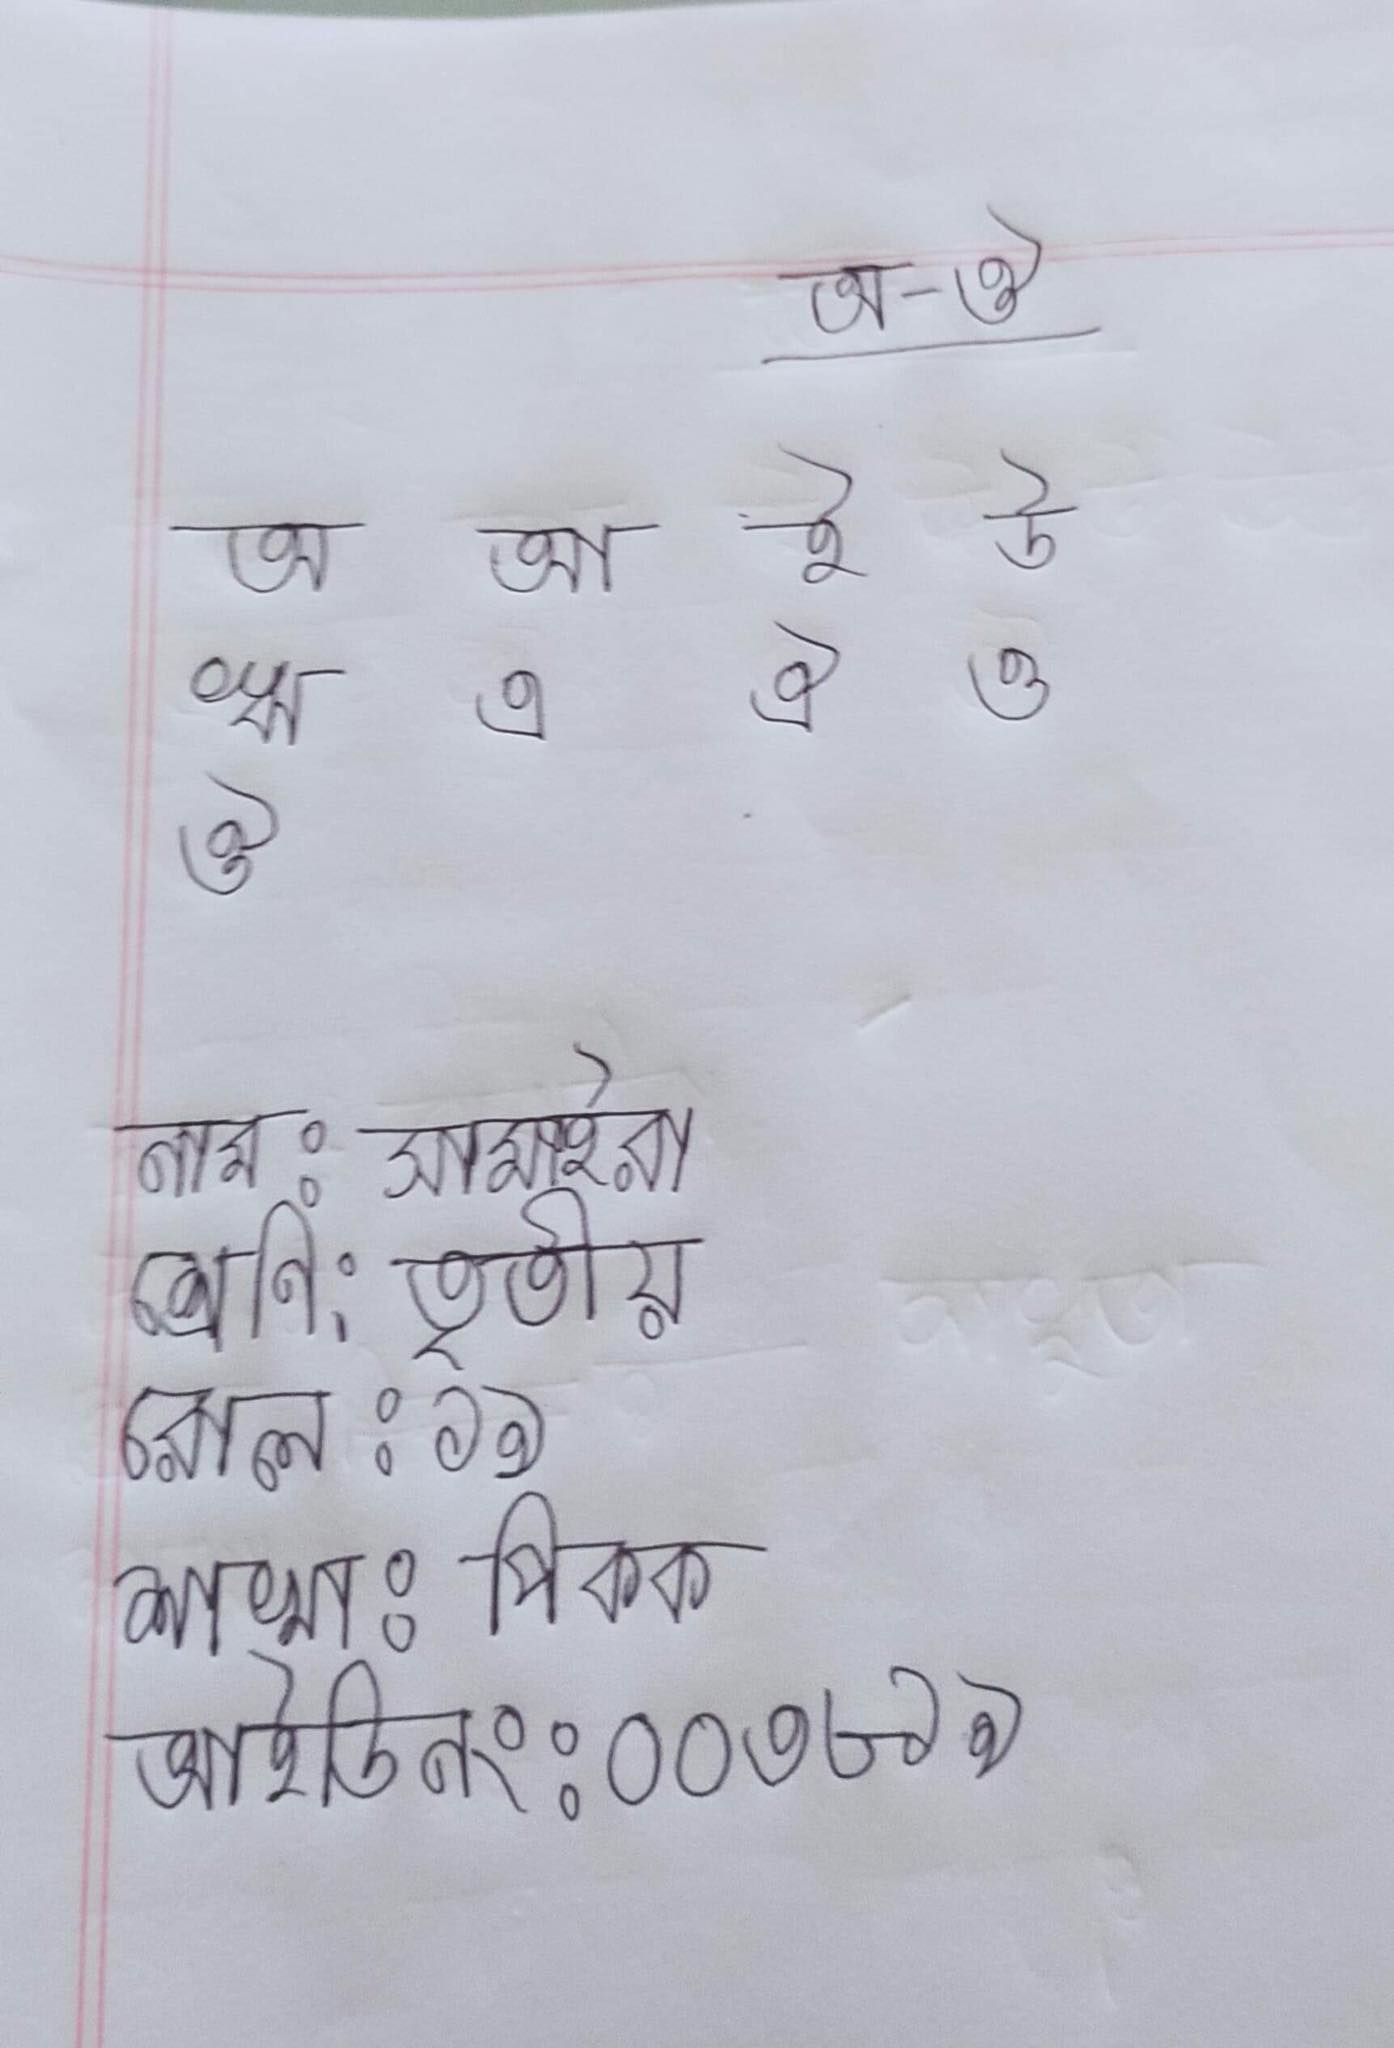 অ-ঔ
অ আ ই উ
ঋ এ ঐ ও
ঔ
নামঃ সামাইরা
শ্রেণিঃ তৃতীয়
রোলঃ ১১
শাখাঃ পিকক
আইডিনংঃ ০০৩৮১১